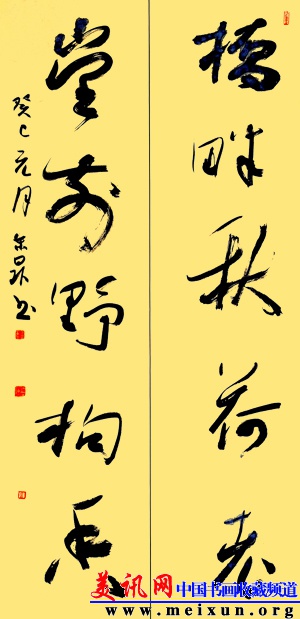 橋畔秋荷老
堂前野枸香
癸巳元月
书
美讯网 中国书画收藏频道
www.meixun.org